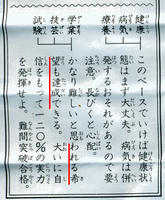 健康
病気
療養
このペースでいけば健康状
態はまず大丈夫。病気は併
発するおそれがあるので要
注意。長びくと心配。
学業
技芸
試験
かなり難しいと思われる希
望も達成できる。さいごに自
信をもって一二〇%の実力
を発揮せよ。難問突破合格。